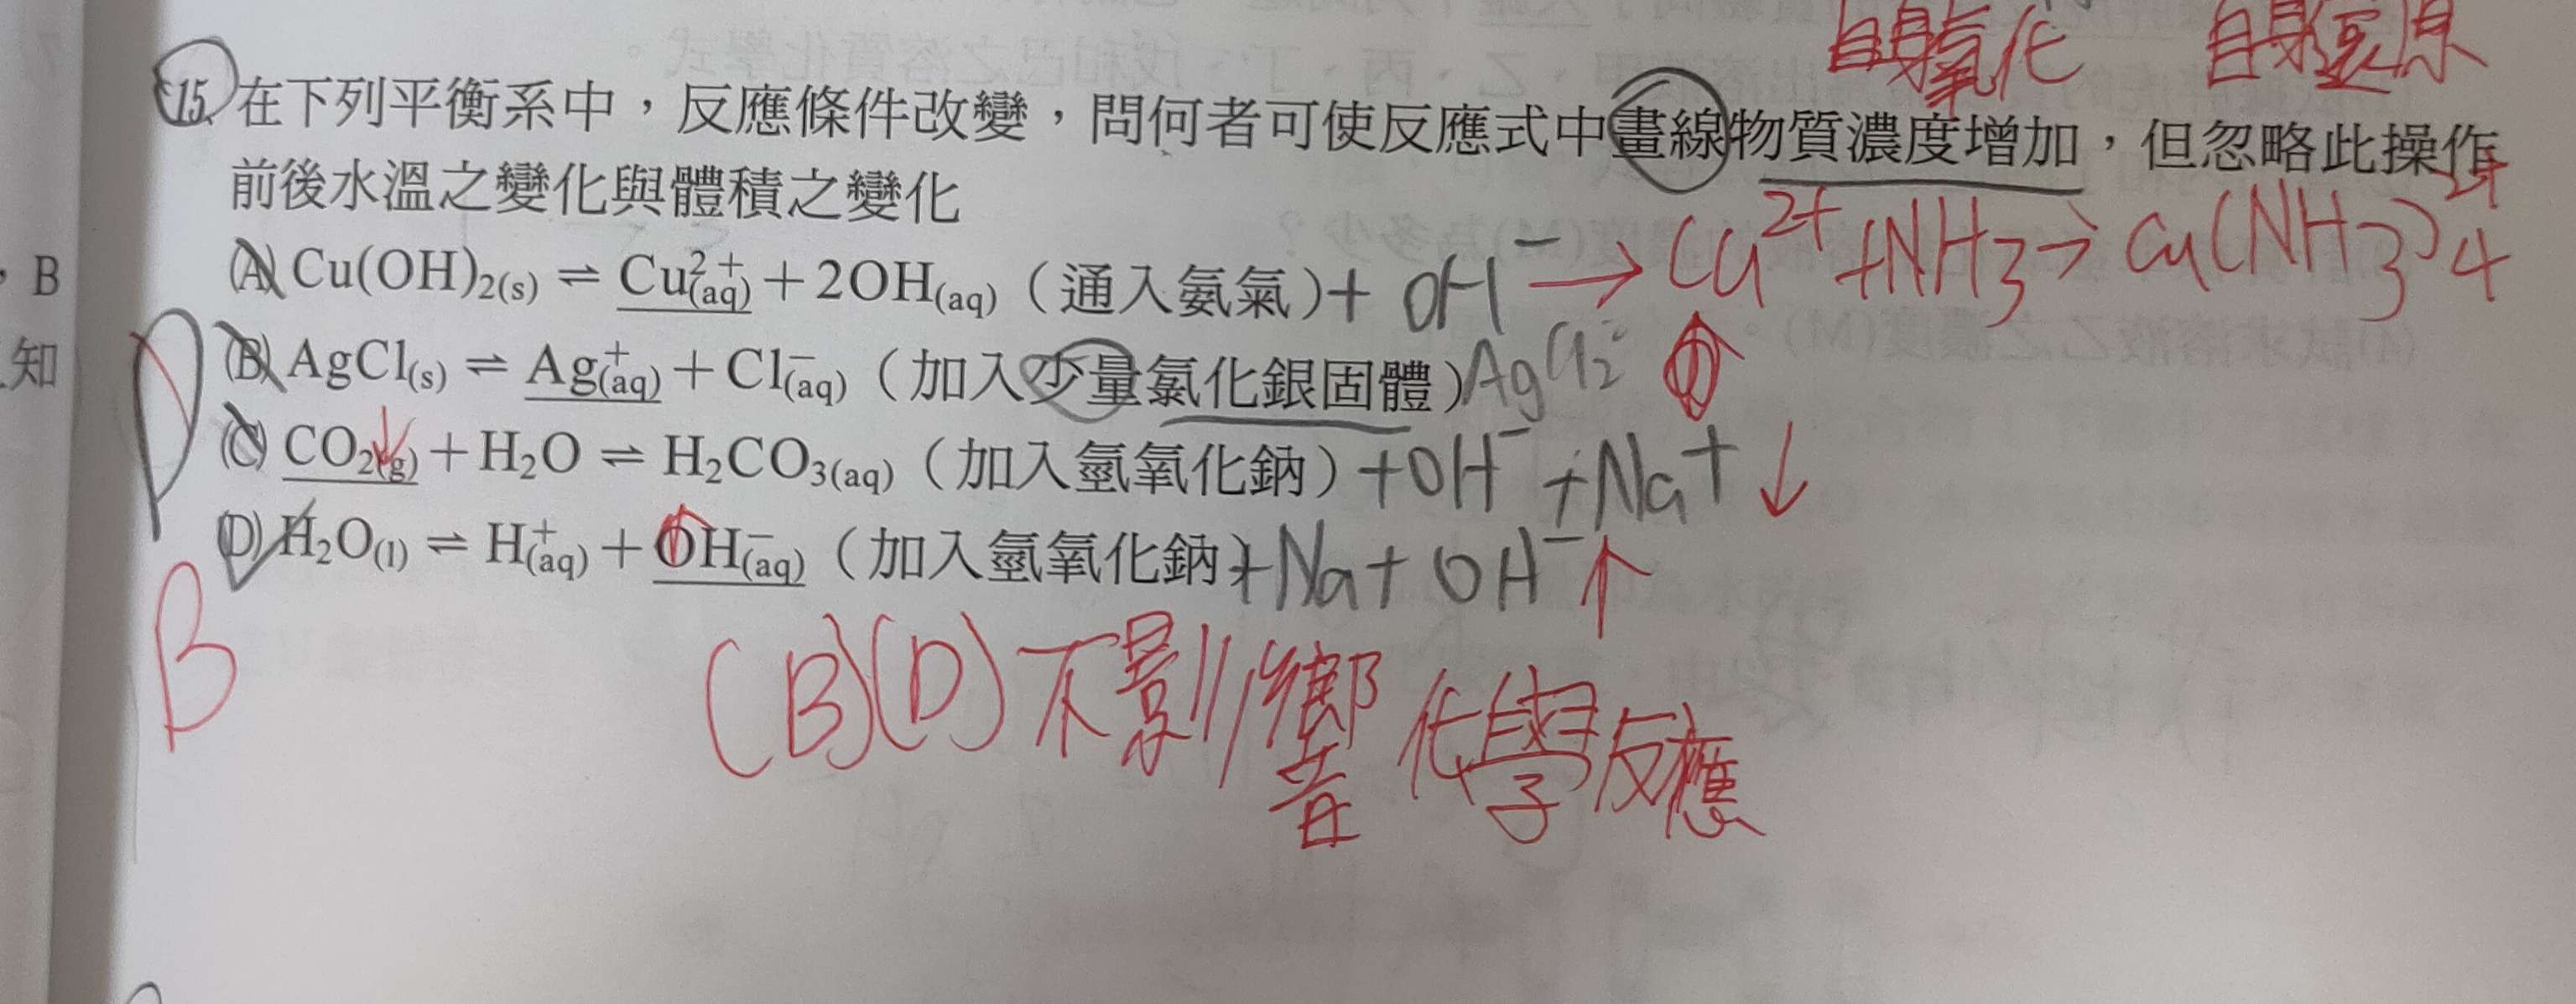 自身氧化 自身還原
15. 在下列平衡系中，反應條件改變，問何者可使反應式中畫線物質濃度增加，但忽略此操作
前後水溫之變化與體積之變化
(A) Cu(OH)2(s) ⇌ Cu2+(aq) + 2OH(aq)（通入氨氣）+ OH− → Cu2+ + NH3 → Cu(NH3)4 2+
，B
(B) AgCl(s) ⇌ Ag+(aq) + Cl−(aq)（加入少量氯化銀固體）AgCl2
知
(C) CO2(g) + H2O ⇌ H2CO3(aq)（加入氫氧化鈉）+OH− +Na+ ↓
D
(D) H2O(l) ⇌ H+(aq) + OH−(aq)（加入氫氧化鈉 +Na+ OH− ↑
B
(B)(D)不影響化學反應